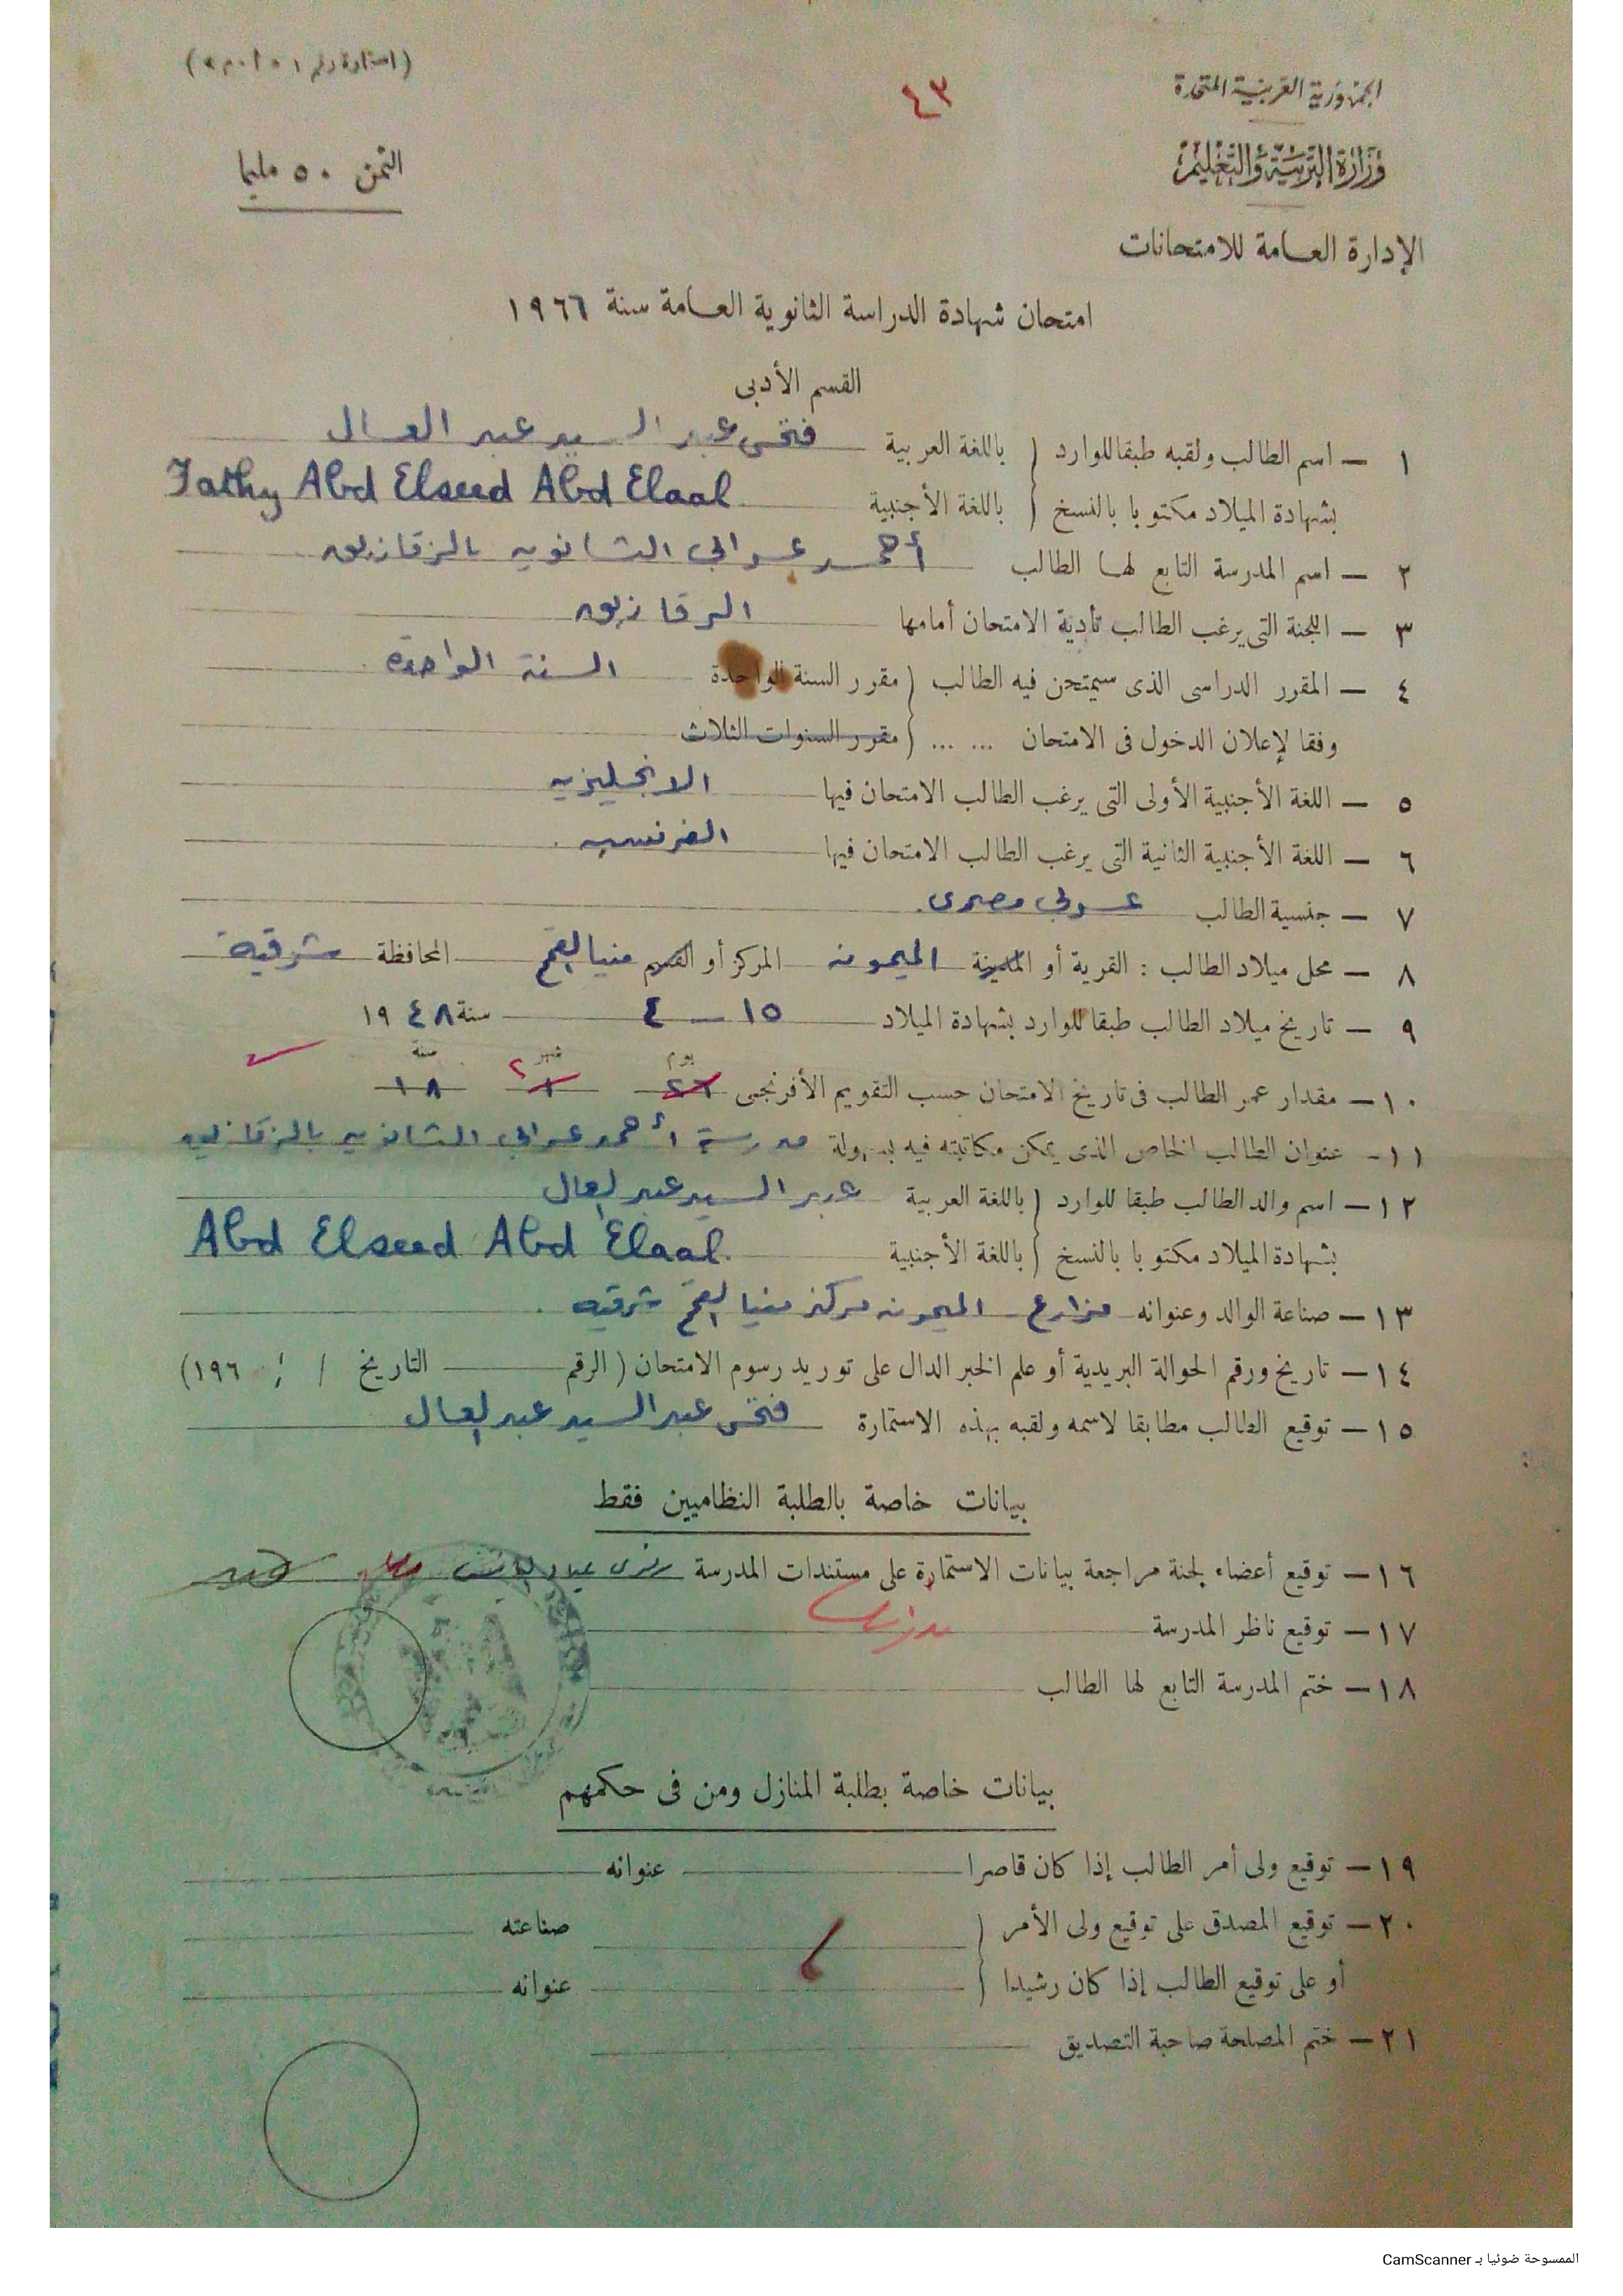 (استمارة رقم
٤٣
الجمهورية العربية المتحدة
وزارة التربية والتعليم
الثمن ٥٠ مليما
الإدارة العامة للامتحانات
امتحان شهادة الدراسة الثانوية العامة سنة ١٩٦٦
القسم الأدبى
١ — اسم الطالب ولقبه طبقا للوارد ( باللغة العربية فتحى عبد السيد عبد العال
بشهادة الميلاد مكتوبا بالنسخ ( باللغة الأجنبية Fathy Abd Elseed Abd Elaal
٢ — اسم المدرسة التابع لها الطالب أحمد عرابى الثانويه بالزقازيق
٣ — اللجنة التى يرغب الطالب تأدية الامتحان أمامها الزقازيق
٤ — المقرر الدراسى الذى سيمتحن فيه الطالب ( مقرر السنة الواحدة السنة الواحدة
وفقا لإعلان الدخول فى الامتحان ... ... ( مقرر السنوات الثلاث
٥ — اللغة الأجنبية الأولى التى يرغب الطالب الامتحان فيها الانجليزيه
٦ — اللغة الأجنبية الثانية التى يرغب الطالب الامتحان فيها الفرنسيه
٧ — جنسية الطالب عربى مصرى
٨ — محل ميلاد الطالب : القرية أو المدينة الميمونه المركز أو القسم منيا القمح المحافظة شرقية
٩ — تاريخ ميلاد الطالب طبقا للوارد بشهادة الميلاد ١٥ — ٤ سنة ١٩٤٨
يوم شهر سنة
١٠ — مقدار عمر الطالب فى تاريخ الامتحان حسب التقويم الأفرنجى ٢٦ ١ ٢ ١٨
١١ - عنوان الطالب الخاص الذى يمكن مكاتبته فيه بسهولة مدرسة أحمد عرابى الثانويه بالزقازيق
١٢ — اسم والد الطالب طبقا للوارد ( باللغة العربية عبد السيد عبد العال
بشهادة الميلاد مكتوبا بالنسخ ( باللغة الأجنبية Abd Elseed Abd Elaal
١٣ — صناعة الوالد وعنوانه مزارع - الميمونه مركز منيا القمح شرقيه
١٤ — تاريخ ورقم الحوالة البريدية أو علم الخبر الدال على توريد رسوم الامتحان ( الرقم التاريخ / / ١٩٦)
١٥ — توقيع الطالب مطابقا لاسمه ولقبه بهذه الاستمارة فتحى عبد السيد عبد العال
بيانات خاصة بالطلبة النظاميين فقط
١٦ — توقيع أعضاء لجنة مراجعة بيانات الاستمارة على مستندات المدرسة
١٧ — توقيع ناظر المدرسة
١٨ — ختم المدرسة التابع لها الطالب
بيانات خاصة بطلبة المنازل ومن فى حكمهم
١٩ — توقيع ولى أمر الطالب إذا كان قاصرا عنوانه
٢٠ — توقيع المصدق على توقيع ولى الأمر ( صناعته
أو على توقيع الطالب إذا كان رشيدا ( عنوانه
٢١ — ختم المصلحة صاحبة التصديق
الممسوحة ضوئيا بـ CamScanner